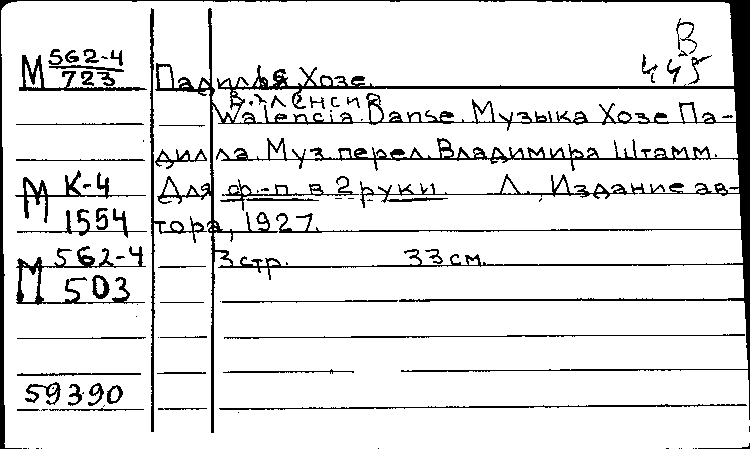 В
445
М 562-4
723
Падилья, Хозе.
Валенсия
Walencia Danse. Музыка Хозе Па-
дилла. Муз. перел. Владимира Штамм.
М К-4
1554
Для ф.-п. в 2 руки. Л., Издание ав-
тора, 1927.
М 562-4
503
3 стр. 33 см.
59390